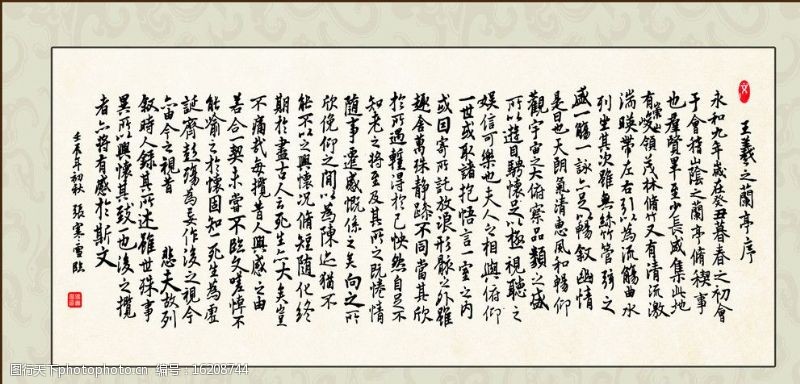 王羲之蘭亭序
永和九年歲在癸丑暮春之初會
于會稽山陰之蘭亭脩稧事
也羣賢畢至少長咸集此地
有崇山峻領茂林脩竹又有清流激
湍暎帶左右引以為流觴曲水
列坐其次雖無絲竹管弦之
盛一觴一詠亦足以暢敘幽情
是日也天朗氣清惠風和暢仰
觀宇宙之大俯察品類之盛
所以遊目騁懷足以極視聽之
娛信可樂也夫人之相與俯仰
一世或取諸抱悟言一室之內
或因寄所託放浪形骸之外雖
趣舍萬殊靜躁不同當其欣
於所遇輕得於己怏然自足不
知老之將至及其所之既惓情
隨事遷感慨係之矣向之所
欣俛仰之間以為陳迹猶不
能不以之興懷況脩短隨化終
期於盡古人云死生亦大矣豈
不痛哉每攬昔人興感之由
若合一契未嘗不臨文嗟悼不
能喻之於懷固知一死生為虛
誕齊彭殤為妄作後之視今
亦由今之視昔 悲夫故列
敘時人錄其所述雖世殊事
異所以興懷其致一也後之攬
者亦將有感於斯文
壬辰年初秋 張寒雪臨
行走天下photophoto.cn 编号：16208744